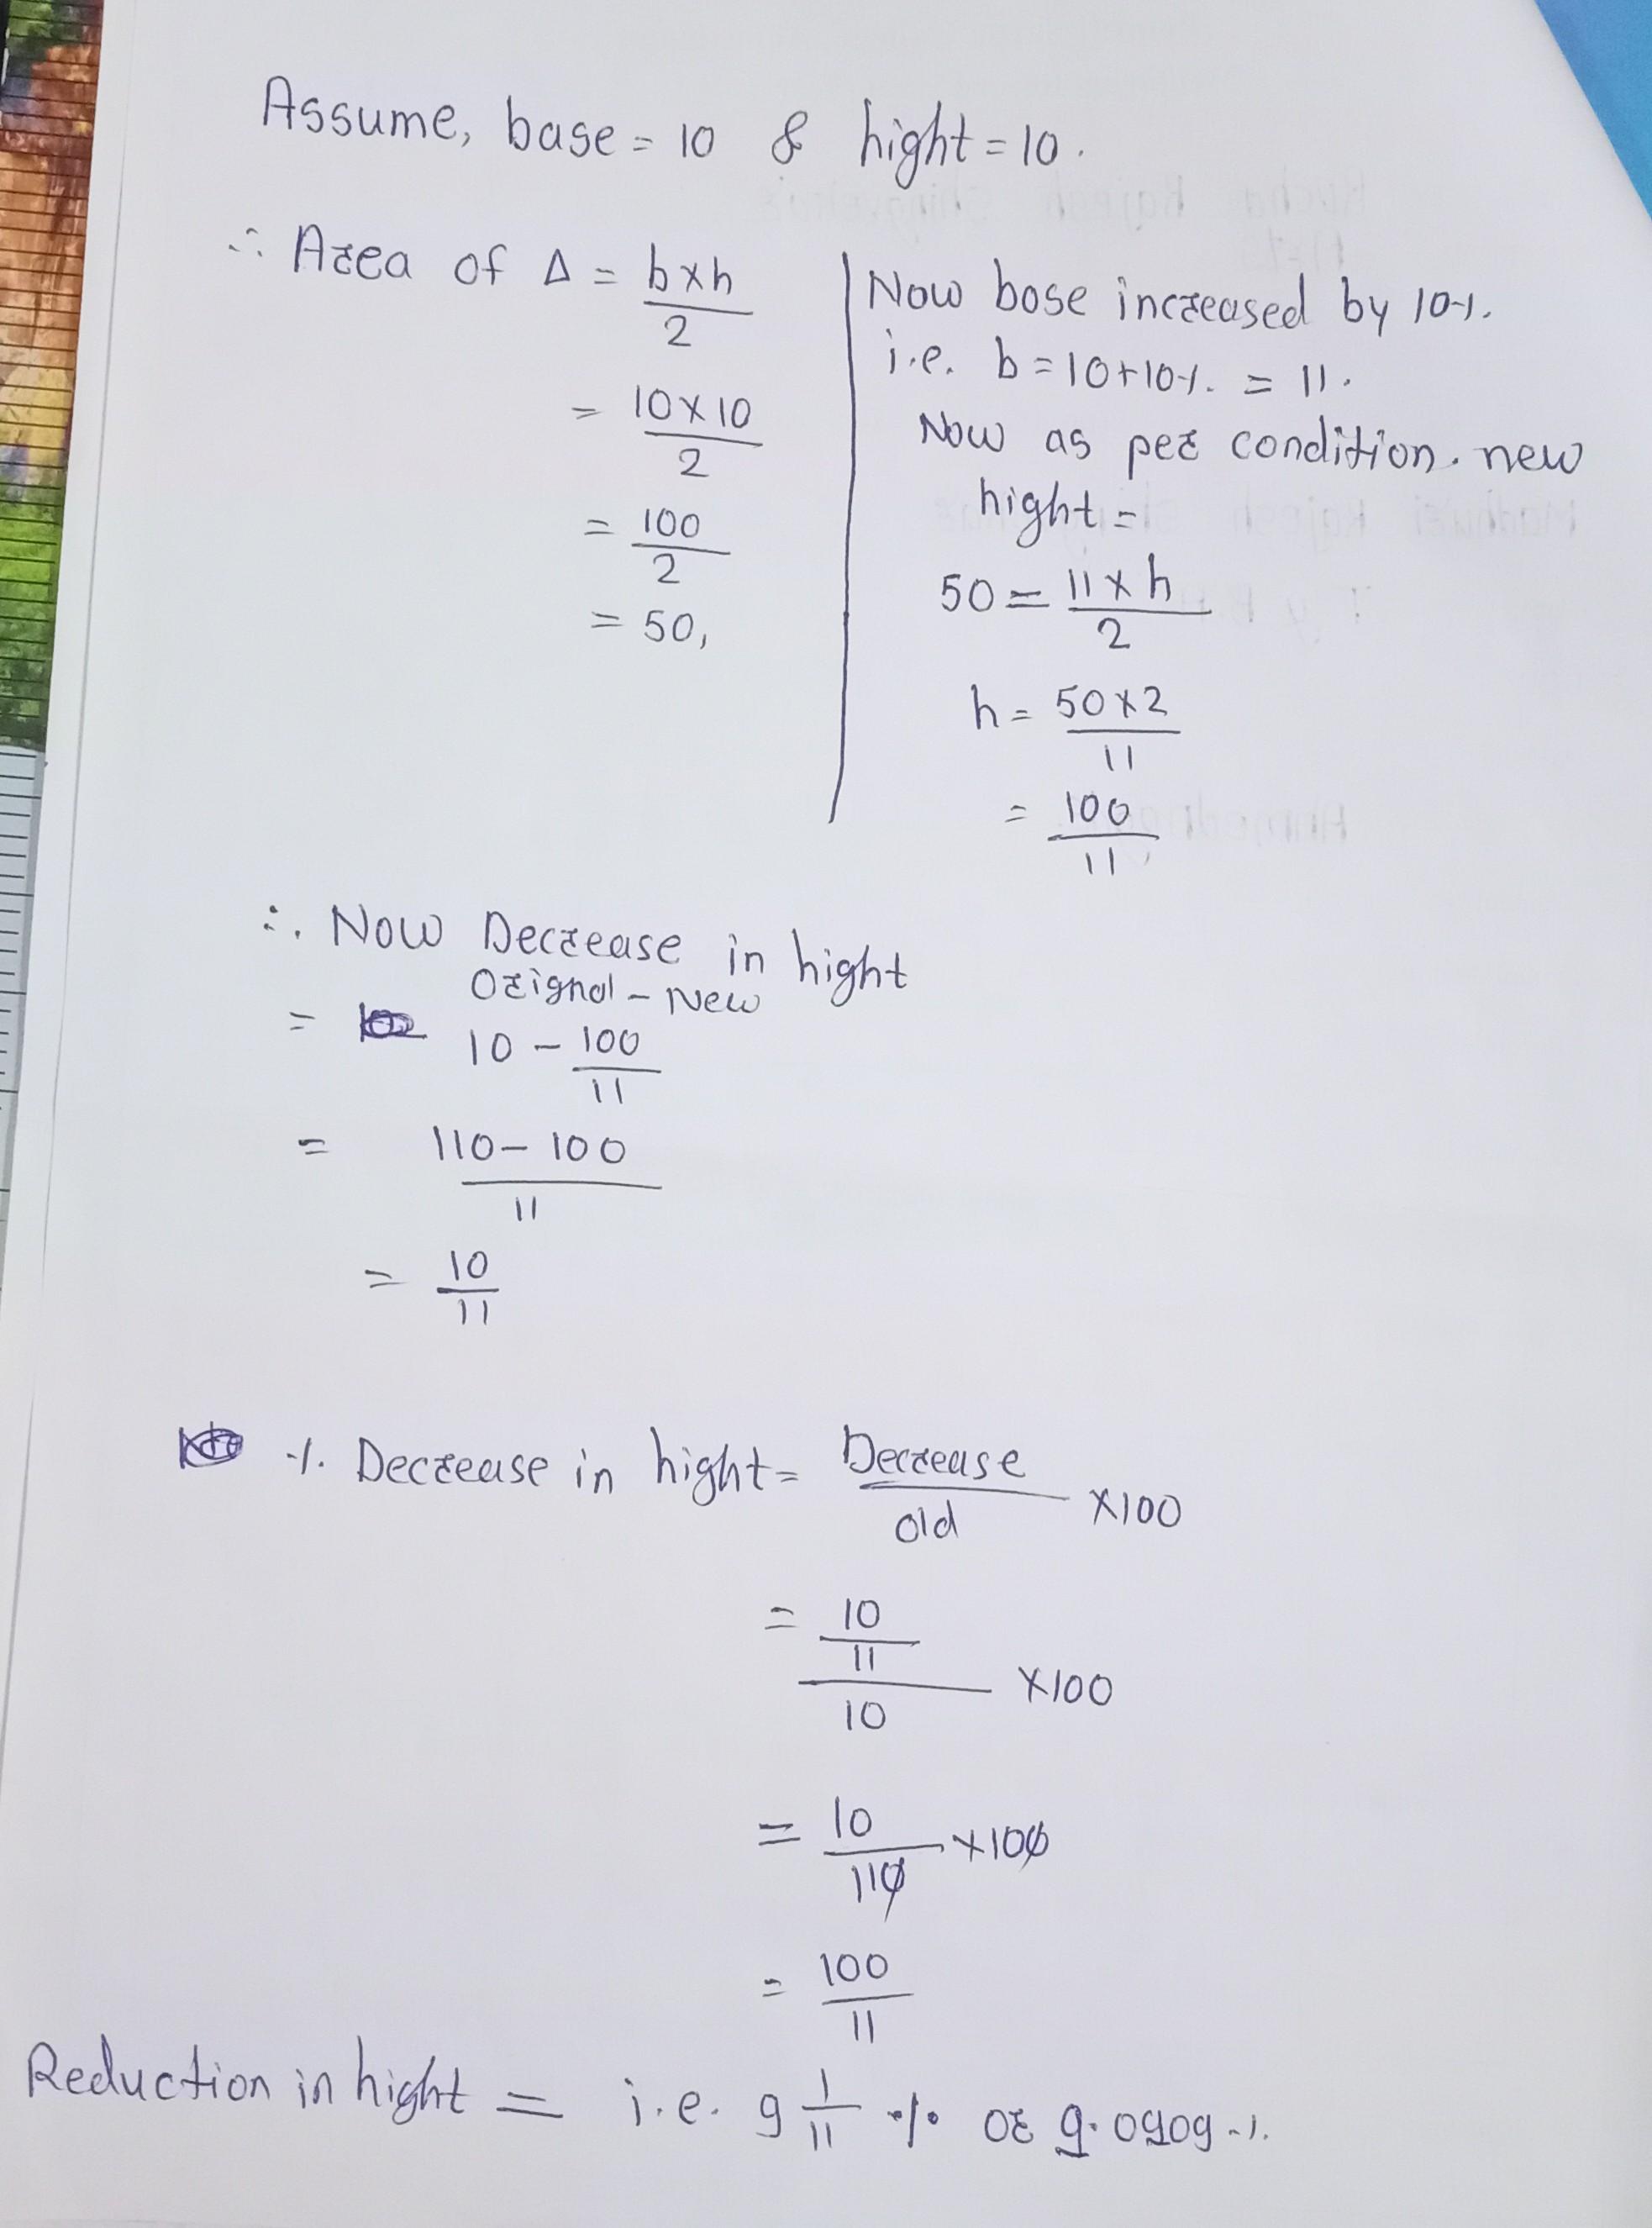 Assume, base = 10 & hight = 10.
∴ Area of Δ = b×h
2
= 10×10
2
= 100
2
= 50,
Now base increased by 10%.
i.e. b = 10+10%. = 11.
Now as per condition. new
hight =
50 = 11×h
2
h = 50×2
11
= 100
11
∴ Now Decrease in hight
Orignal - New
= 10 - 100
11
= 110 - 100
11
= 10
11
% Decrease in hight = Decrease
old
×100
= 10
11
10
×100
= 10
110
×100
= 100
11
Reduction in hight = i.e. 9 1/11 % or 9.0909 %.